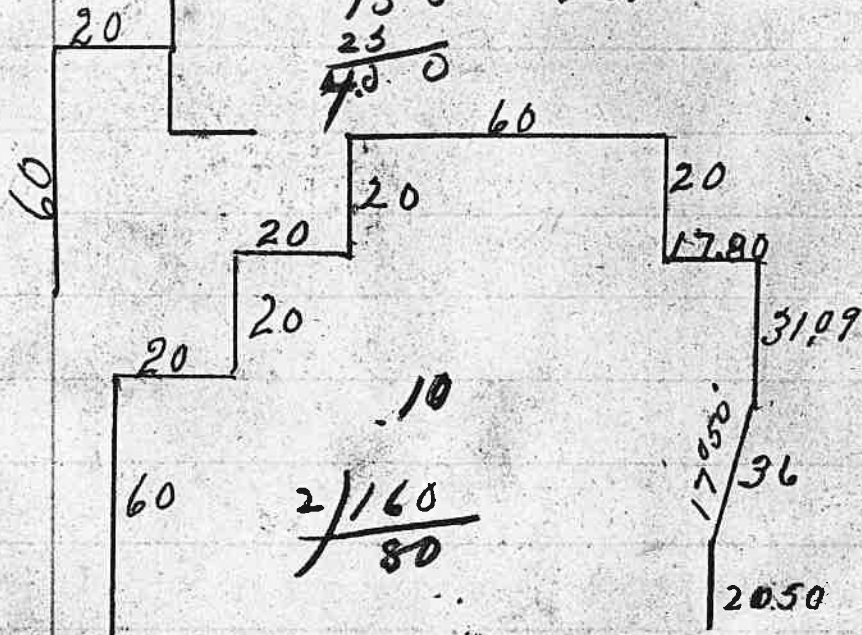 20
25
60
60
20
20
17.80
20
20
31.09
20
.10
17°50'
36
60
2)160
80
20.50